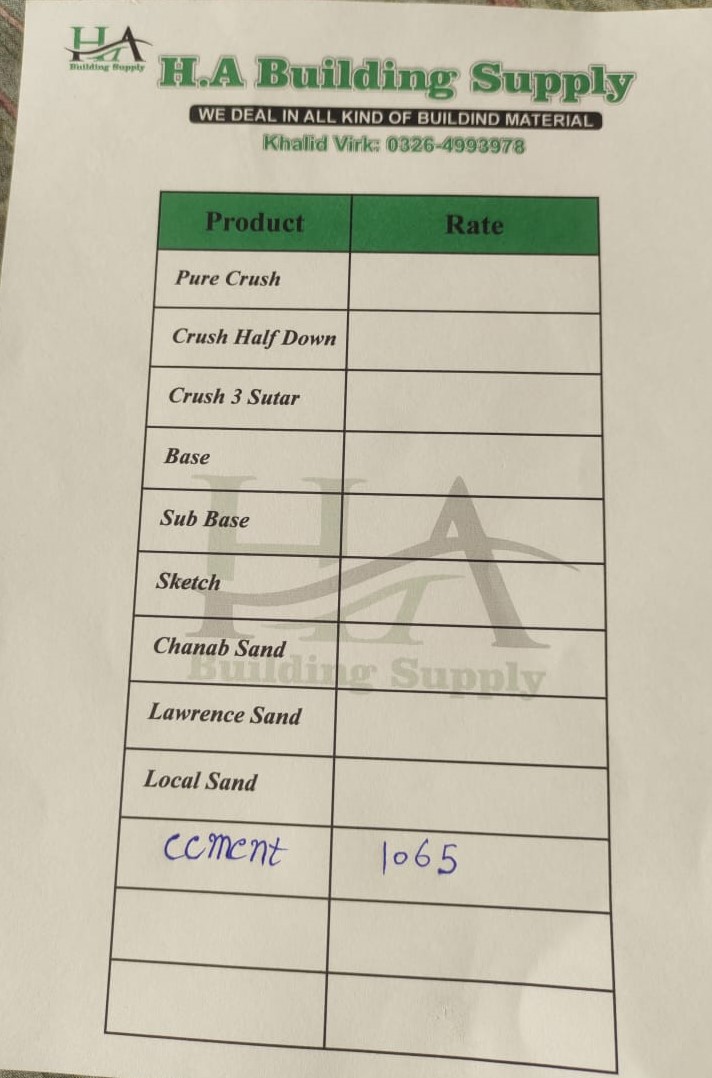 HA
Building Supply
H.A Building Supply
WE DEAL IN ALL KIND OF BUILDIND MATERIAL
Khalid Virk: 0326-4993978
Product Rate
Pure Crush
Crush Half Down
Crush 3 Sutar
Base
Sub Base
Sketch
Chanab Sand
Lawrence Sand
Local Sand
cement 1065
HA
Building Supply